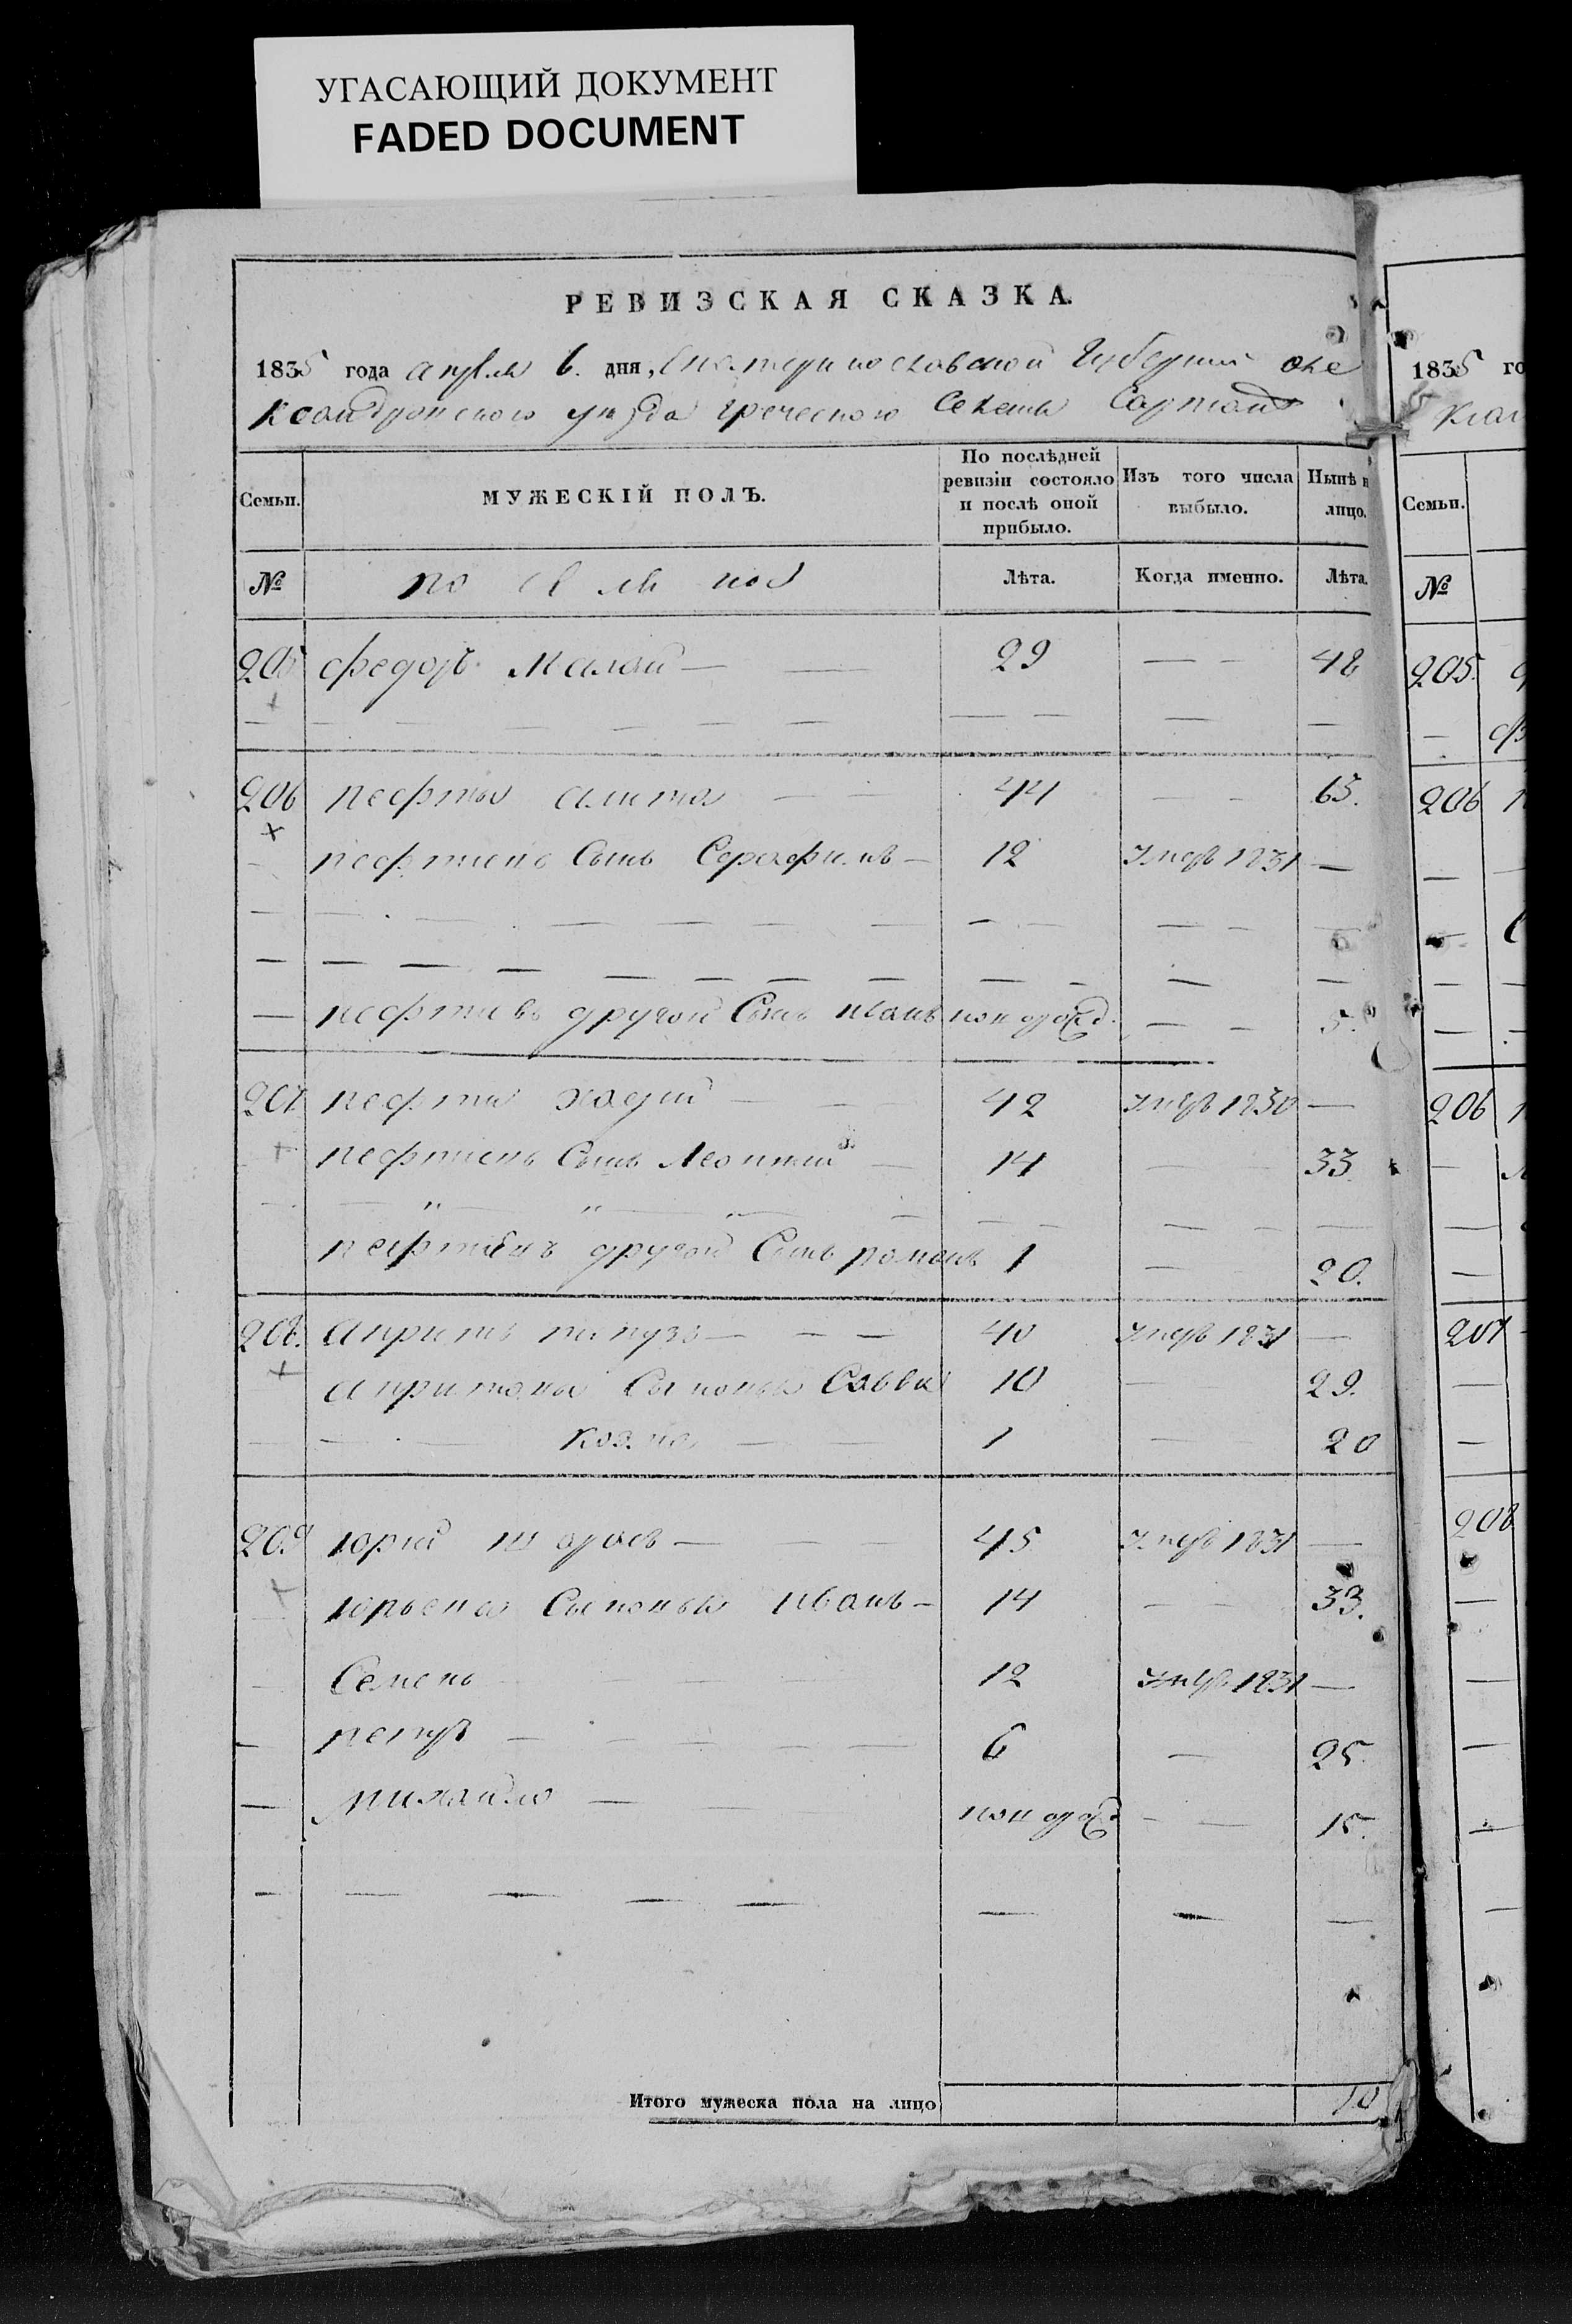 УГАСАЮЩИЙ ДОКУМЕНТ
FADED DOCUMENT
РЕВИЗСКАЯ СКАЗКА.
1835 года апреля 6. дня, Екатеринославской Губернии Але
ксандровского уезда греческого Селения Сартаны
Семьи. МУЖЕСКІЙ ПОЛЪ. По послѣдней ревизіи состояло и послѣ оной прибыло. Изъ того числа выбыло. Нынѣ н лицо.
№ Лѣта. Когда именно. Лѣта.
205 федоръ Малай — — 29 — — 48
206 пефти — — 44 — — 63.
пефтиевъ Сынъ Серафимъ — 12 Умеръ 1831 —
— пефтиевъ другой Сынъ иванъ — — 5.
207 пефти хаджи — — 42 Умеръ 1830 —
пефтиевъ Сынъ Леонтий — 14 — 33
пефтиевъ другой Сынъ романъ 1 — 20.
208. — — — 40 Умеръ 1831 —
Сыновья Савва 10 — 29.
— Козма — — 1 — 20
209 юрий — — — 45 Умеръ 1831 —
юрьевы Сыновья иванъ — 14 — — 33.
Семенъ 12 Умеръ 1831 —
— петръ — 6 — 25
— михайло — — — — 15.
Итого мужеска пола на лицо 10
1835 го
Семьи.
№
205.
206
206
207
208